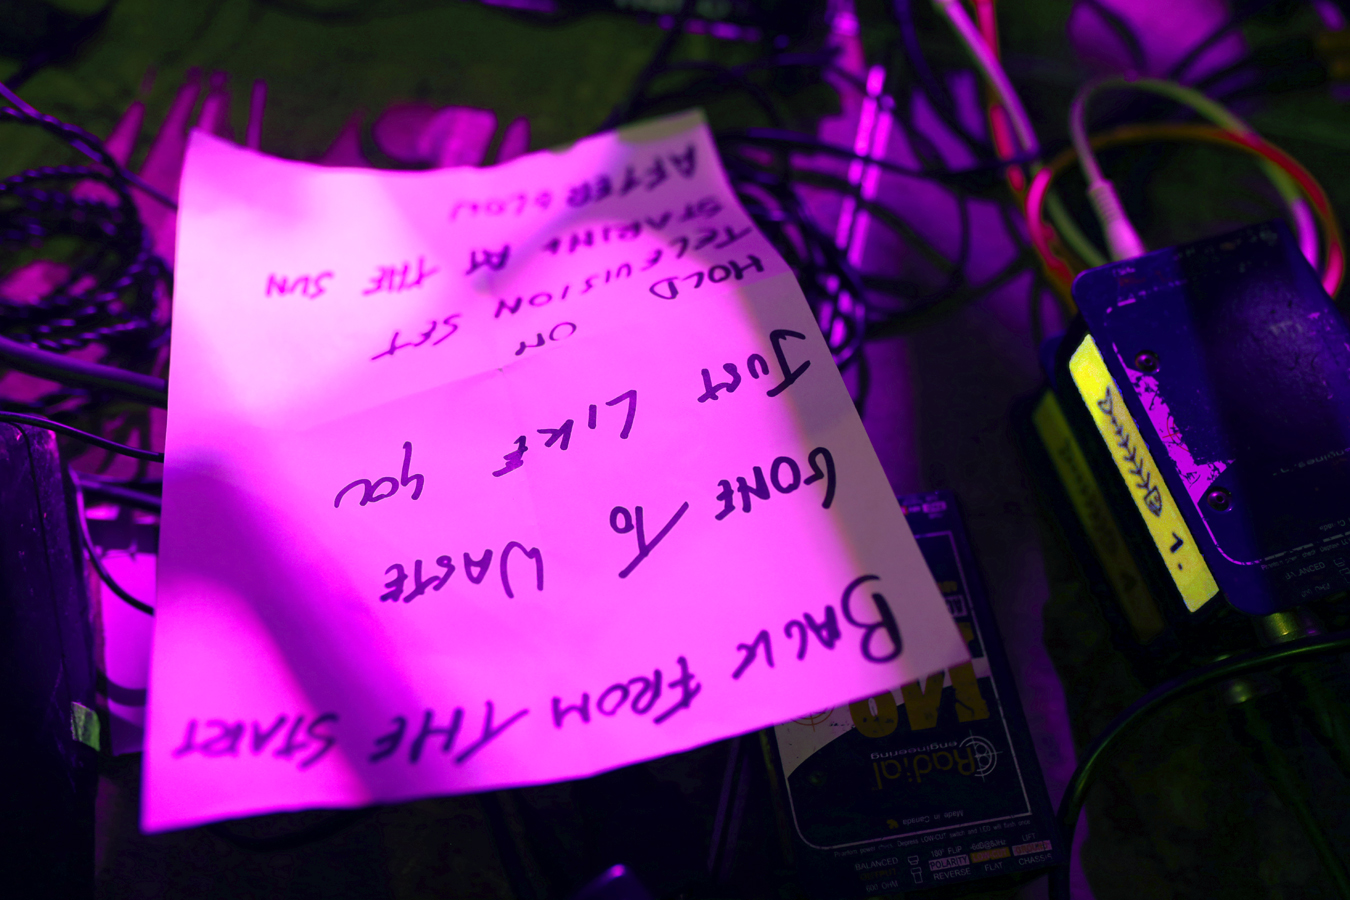 BACK FROM THE START
GONE TO WASTE
JUST LIKE YOU
HOLD ON
TELEVISION SET
STARING AT THE SUN
AFTERGLOW
Radial
engineering
Made in Canada
BALANCED
180° FLIP
POLARITY
REVERSE
FLAT
LIFT
CHASSIS
1.